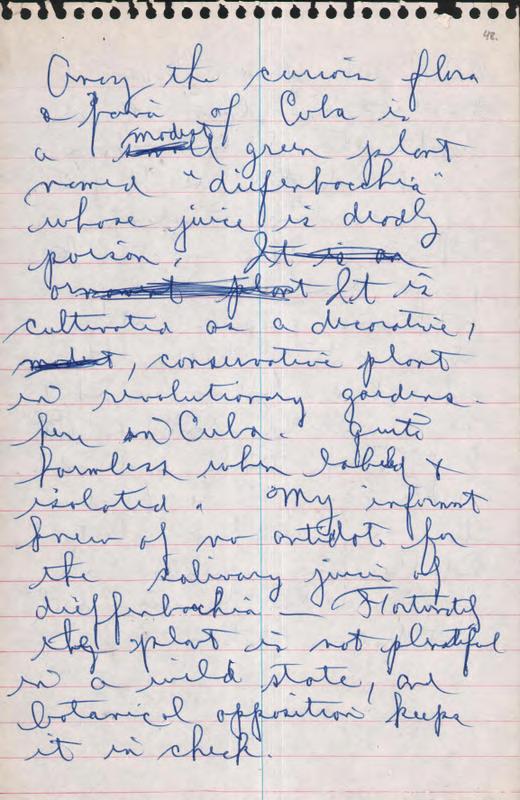 48.
Among the curious flora
& fauna of Cuba is
a modest green plant
named "diefenbocchia"
whose juice is deadly
poison. It is an
ornament plant It is
cultivated as a decorative,
modest, conservative plant
in revolutionary gardens.
here in Cuba. Quite
harmless when labeled &
isolated. My informant
knew of no antidote for
the salivary juice of
dieffenbachia — Fortunately
the plant is not plentiful
in a wild state, and
botanical opposition keeps
it in check.